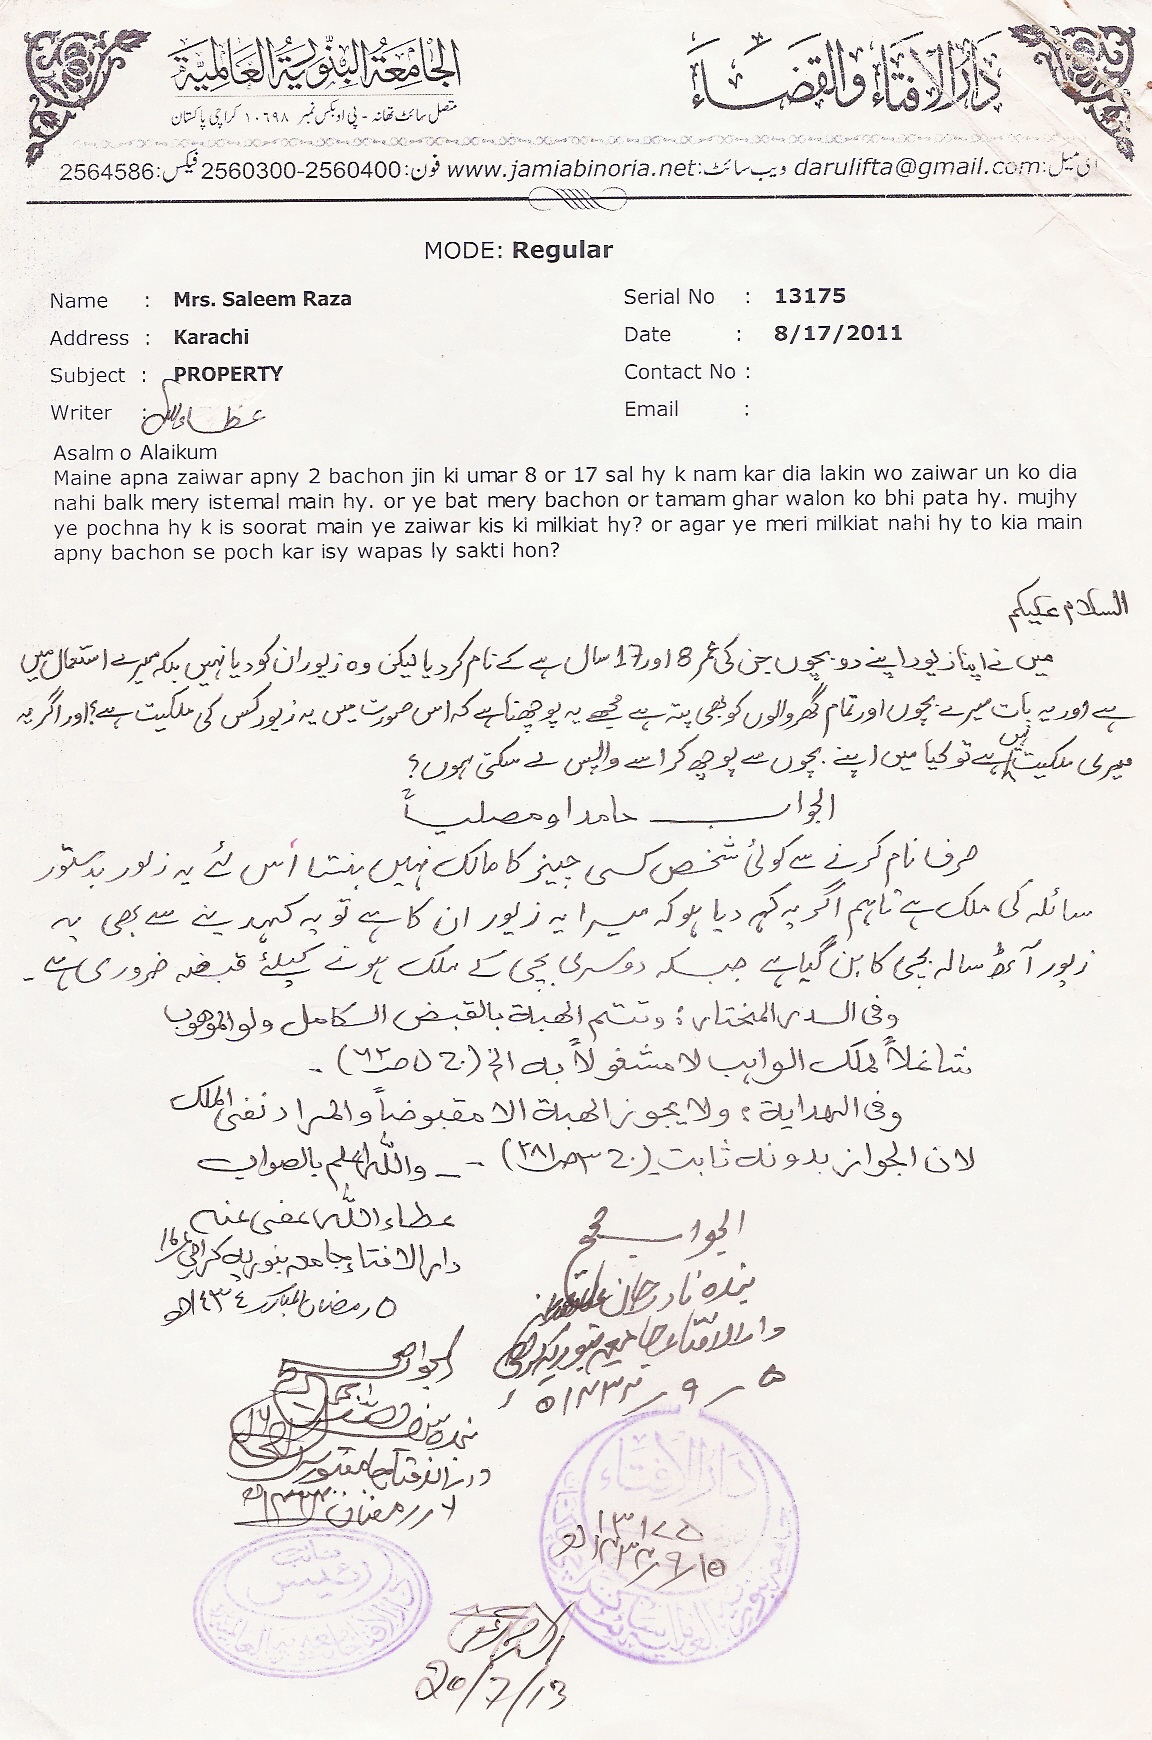 دار الافتاء والقضاء
الجامعة البنورية العالمية
متصل سائٹ تھانہ - پی او بکس نمبر ۱۰۶۹۸ کراچی پاکستان
ای میل: darulifta@gmail.com ویب سائٹ: www.jamiabinoria.net فون: 2560300-2560400 فیکس: 2564586
MODE: Regular
Name : Mrs. Saleem Raza
Serial No : 13175
Address : Karachi
Date : 8/17/2011
Subject : PROPERTY
Contact No :
Writer : عطاءاللہ
Email :
Asalm o Alaikum
Maine apna zaiwar apny 2 bachon jin ki umar 8 or 17 sal hy k nam kar dia lakin wo zaiwar un ko dia
nahi balk mery istemal main hy. or ye bat mery bachon or tamam ghar walon ko bhi pata hy. mujhy
ye pochna hy k is soorat main ye zaiwar kis ki milkiat hy? or agar ye meri milkiat nahi hy to kia main
apny bachon se poch kar isy wapas ly sakti hon?
السلام علیکم
میں نے اپنا زیور اپنے دو بچوں جن کی عمر 8 اور 17 سال ہے کے نام کر دیا لیکن وہ زیور ان کو دیا نہیں بلکہ میرے استعمال میں
ہے اور یہ بات میرے بچوں اور تمام گھر والوں کو بھی پتہ ہے مجھے یہ پوچھنا ہے کہ اس صورت میں یہ زیور کس کی ملکیت ہے؟ اور اگر یہ
میری ملکیت نہیں ہے تو کیا میں اپنے بچوں سے پوچھ کر اسے واپس لے سکتی ہوں؟
الجواب حامدا ومصلیاً
صرف نام کرنے سے کوئی شخص کسی چیز کا مالک نہیں بنتا اس لئے یہ زیور بدستور
سائلہ کی ملک ہے تاہم اگر یہ کہہ دیا ہو کہ میرا یہ زیور ان کا ہے تو یہ کہدینے سے بھی یہ
زیور آٹھ سالہ بچی کا بن گیا ہے جبکہ دوسری بچی کے ملک ہونے کیلئے قبضہ ضروری ہے۔
وفی الدر المختار: وتتم الھبة بالقبض الکامل ولو الموھوب
شاغلاً لملک الواھب لا مشغولاً بہ الخ
وفی الھدایة: ولا یجوز الھبة الا مقبوضاً والمراد نفی الملک
لان الجواز بدونہ ثابت (ج ۳ ص ۲۸۱) - واللہ اعلم بالصواب
عطاءاللہ عفی عنہ
دار الافتاء جامعہ بنوریہ کراچی ۱۶
۵ رمضان المبارک ۱٤۳٤ھ
الجواب صحیح
بندہ نادر جان
دار الافتاء جامعہ بنوریہ کراچی
الجواب صحیح
بندہ
دار الافتاء جامعہ بنوریہ
دار الافتاء
۱۳۱۷۵
نائب
رئیس
20/7/13